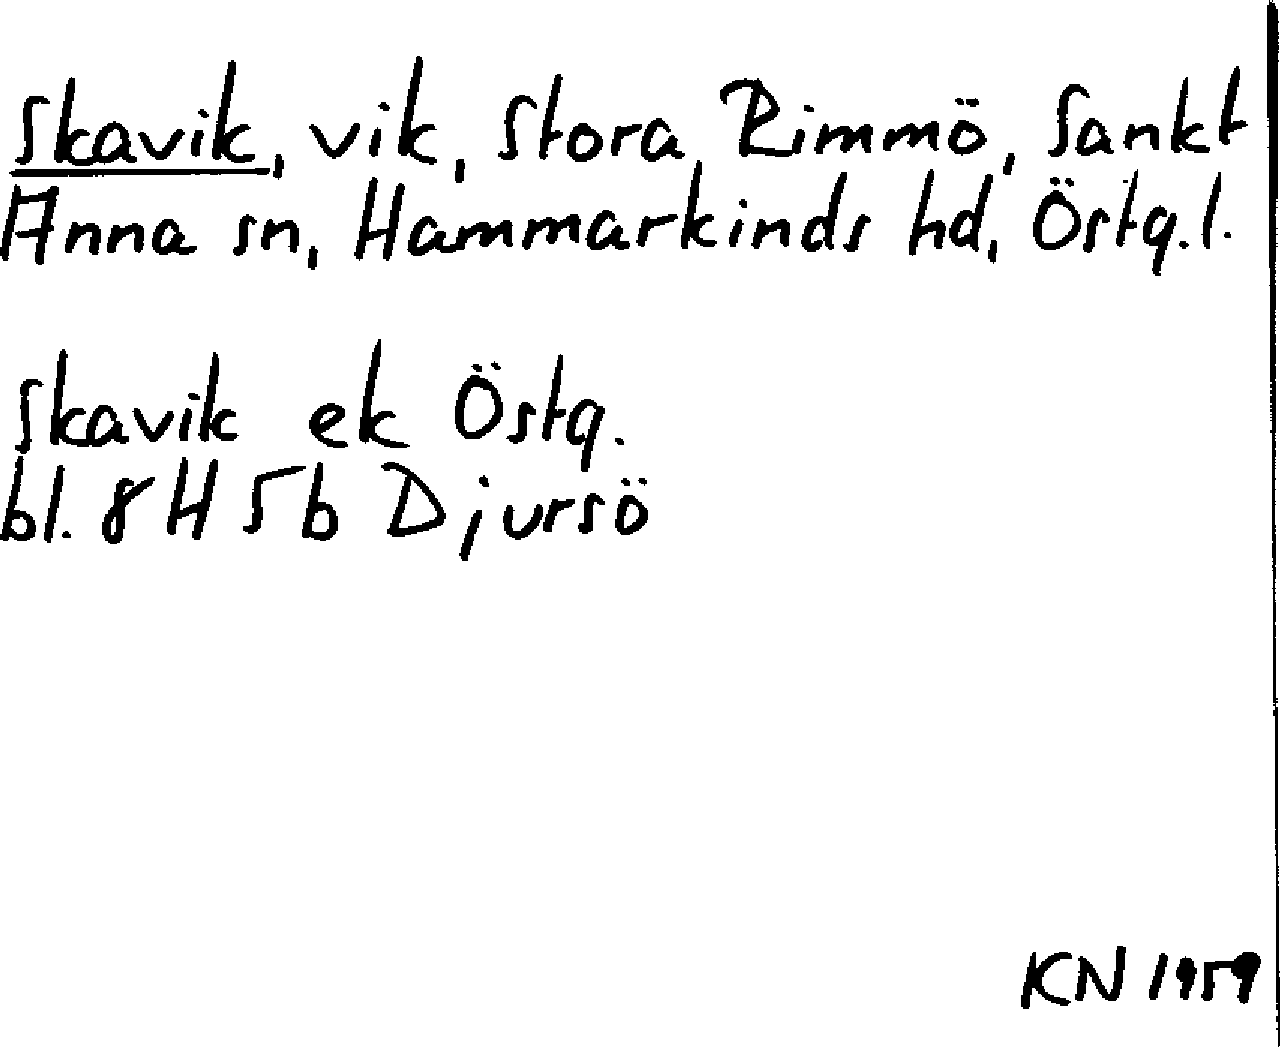 Skavik, vik, Stora Rimmö, Sankt
Anna sn, Hammarkinds hd, Östg.l.
Skavik ek Östg.
bl. 8H 5b Djursö
KN 1959